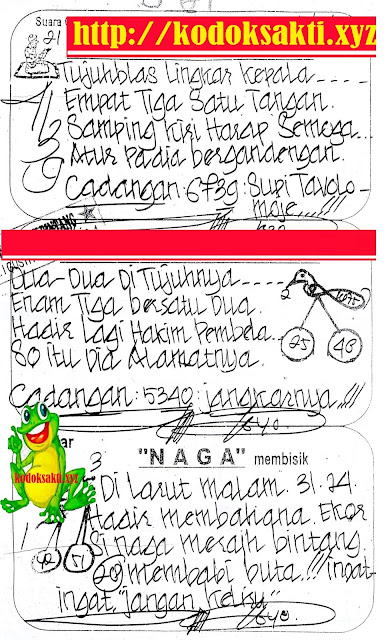 Suara G
21
http://kodoksakti.xyz
Tujuhblas Lingkar Kepala - - - -
Empat Tiga Satu Tangan.
Samping kiri Harap Semoga...
Atur Padia bergandengan.
Cadangan: 6739: Supi Tavolo-
moje....!!!
Dua-Dua Di Tujuhnya - - - - -
Enam Tiga bersatu Dua.
Hadir Lagi Hakim Pembela...
80 itu Dia Alamatnya.
2
25
43
Cadangan: 5340: jangkarnya.!!!
kodoksakti.xyz
"NAGA" membisik
3
Di Larut malam. 31.24.
Hadir membahana. Ekor
Si naga meraih bintang
membabi buta..!!! ingat-
ingat, "jangan keliru"
51